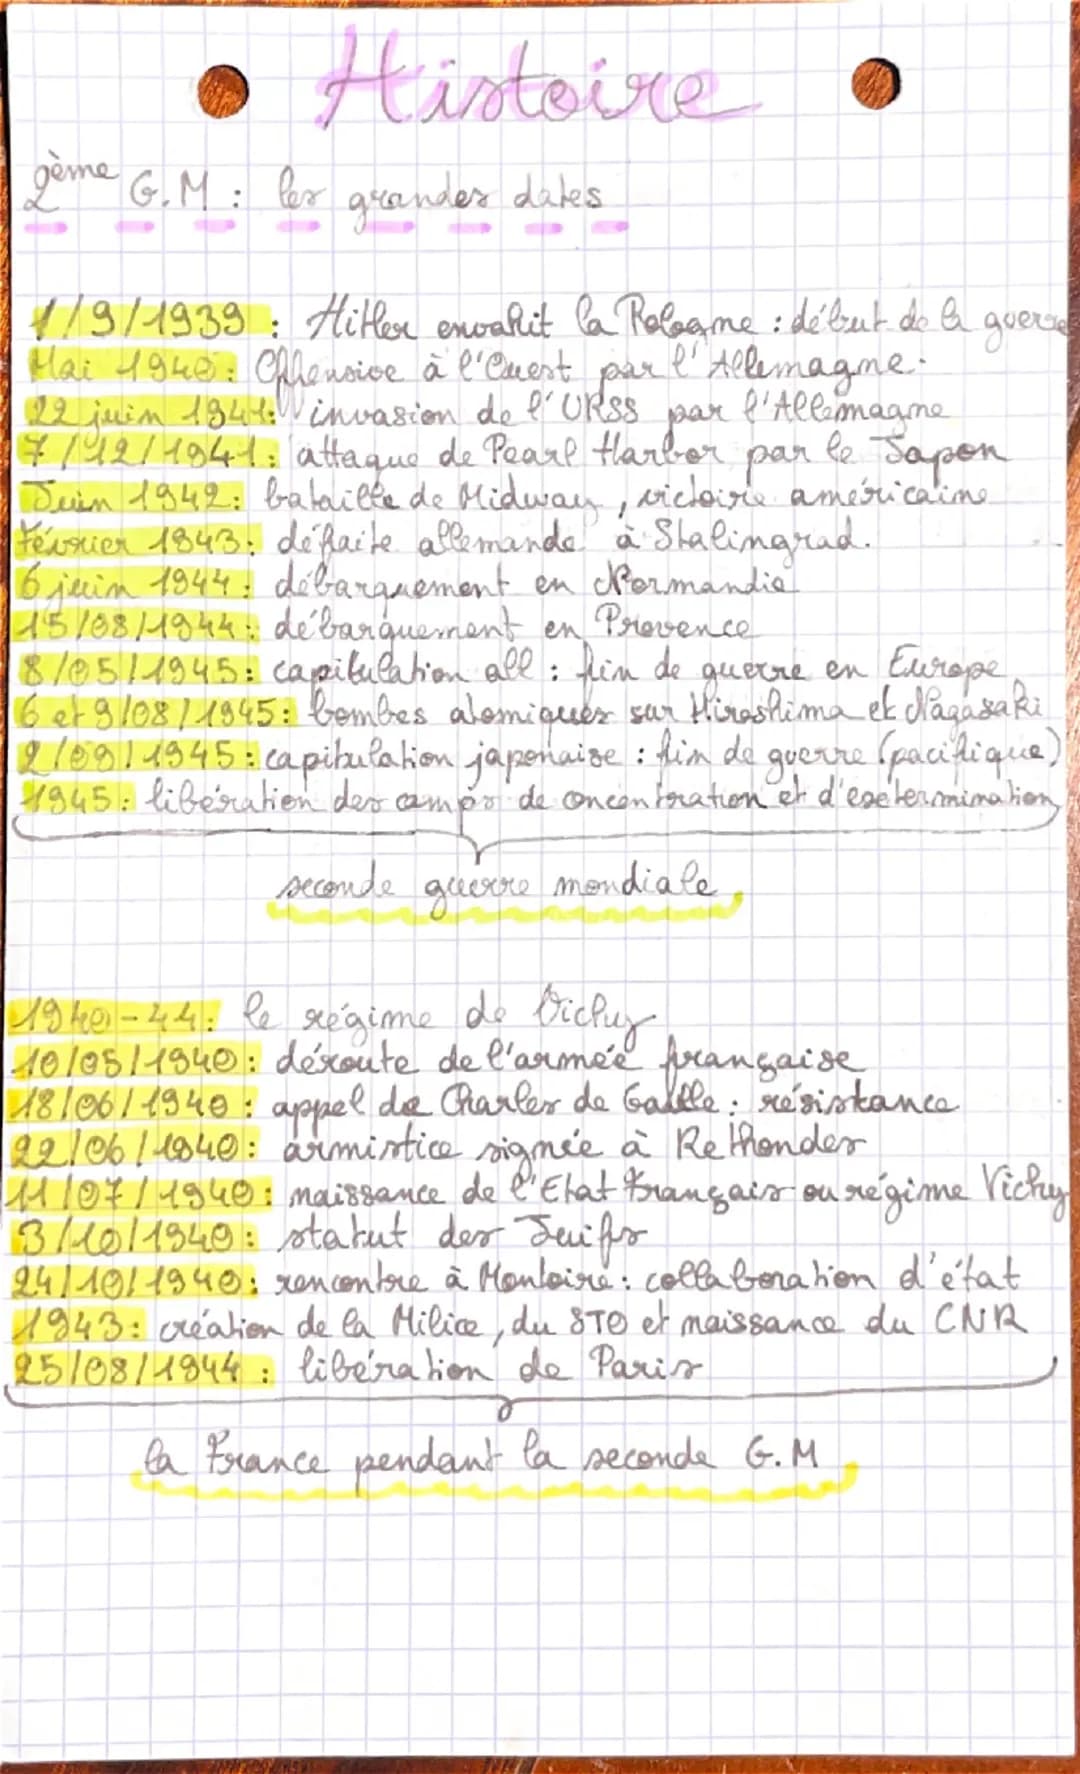 Histoire
2ème G.M : les grandes dates
1/9/1939 : Hitler envahit la Pologne : début de la guerre
Mai 1940 : Offensive à l'Ouest par l'Allemagne.
22 juin 1941 : invasion de l'URSS par l'Allemagne
7/12/1941 : attaque de Pearl Harbor par le Japon
Juin 1942 : bataille de Midway, victoire américaine
Février 1943 : défaite allemande à Stalingrad.
6 juin 1944 : débarquement en Normandie
15/08/1944 : débarquement en Provence
8/05/1945 : capitulation all : fin de guerre en Europe
6 et 9/08/1945 : bombes atomiques sur Hiroshima et Nagasaki
2/09/1945 : capitulation japonaise : fin de guerre (pacifique)
1945 : libération des camps de concentration et d'extermination
seconde guerre mondiale
1940-44 : le régime de Vichy
10/05/1940 : déroute de l'armée française
18/06/1940 : appel de Charles de Gaulle : résistance
22/06/1940 : armistice signée à Rethondes
11/07/1940 : naissance de l'Etat Français ou régime Vichy
3/10/1940 : statut des Juifs
24/10/1940 : rencontre à Montoire : collaboration d'état
1943 : création de la Milice, du STO et naissance du CNR
25/08/1944 : libération de Paris
la France pendant la seconde G.M